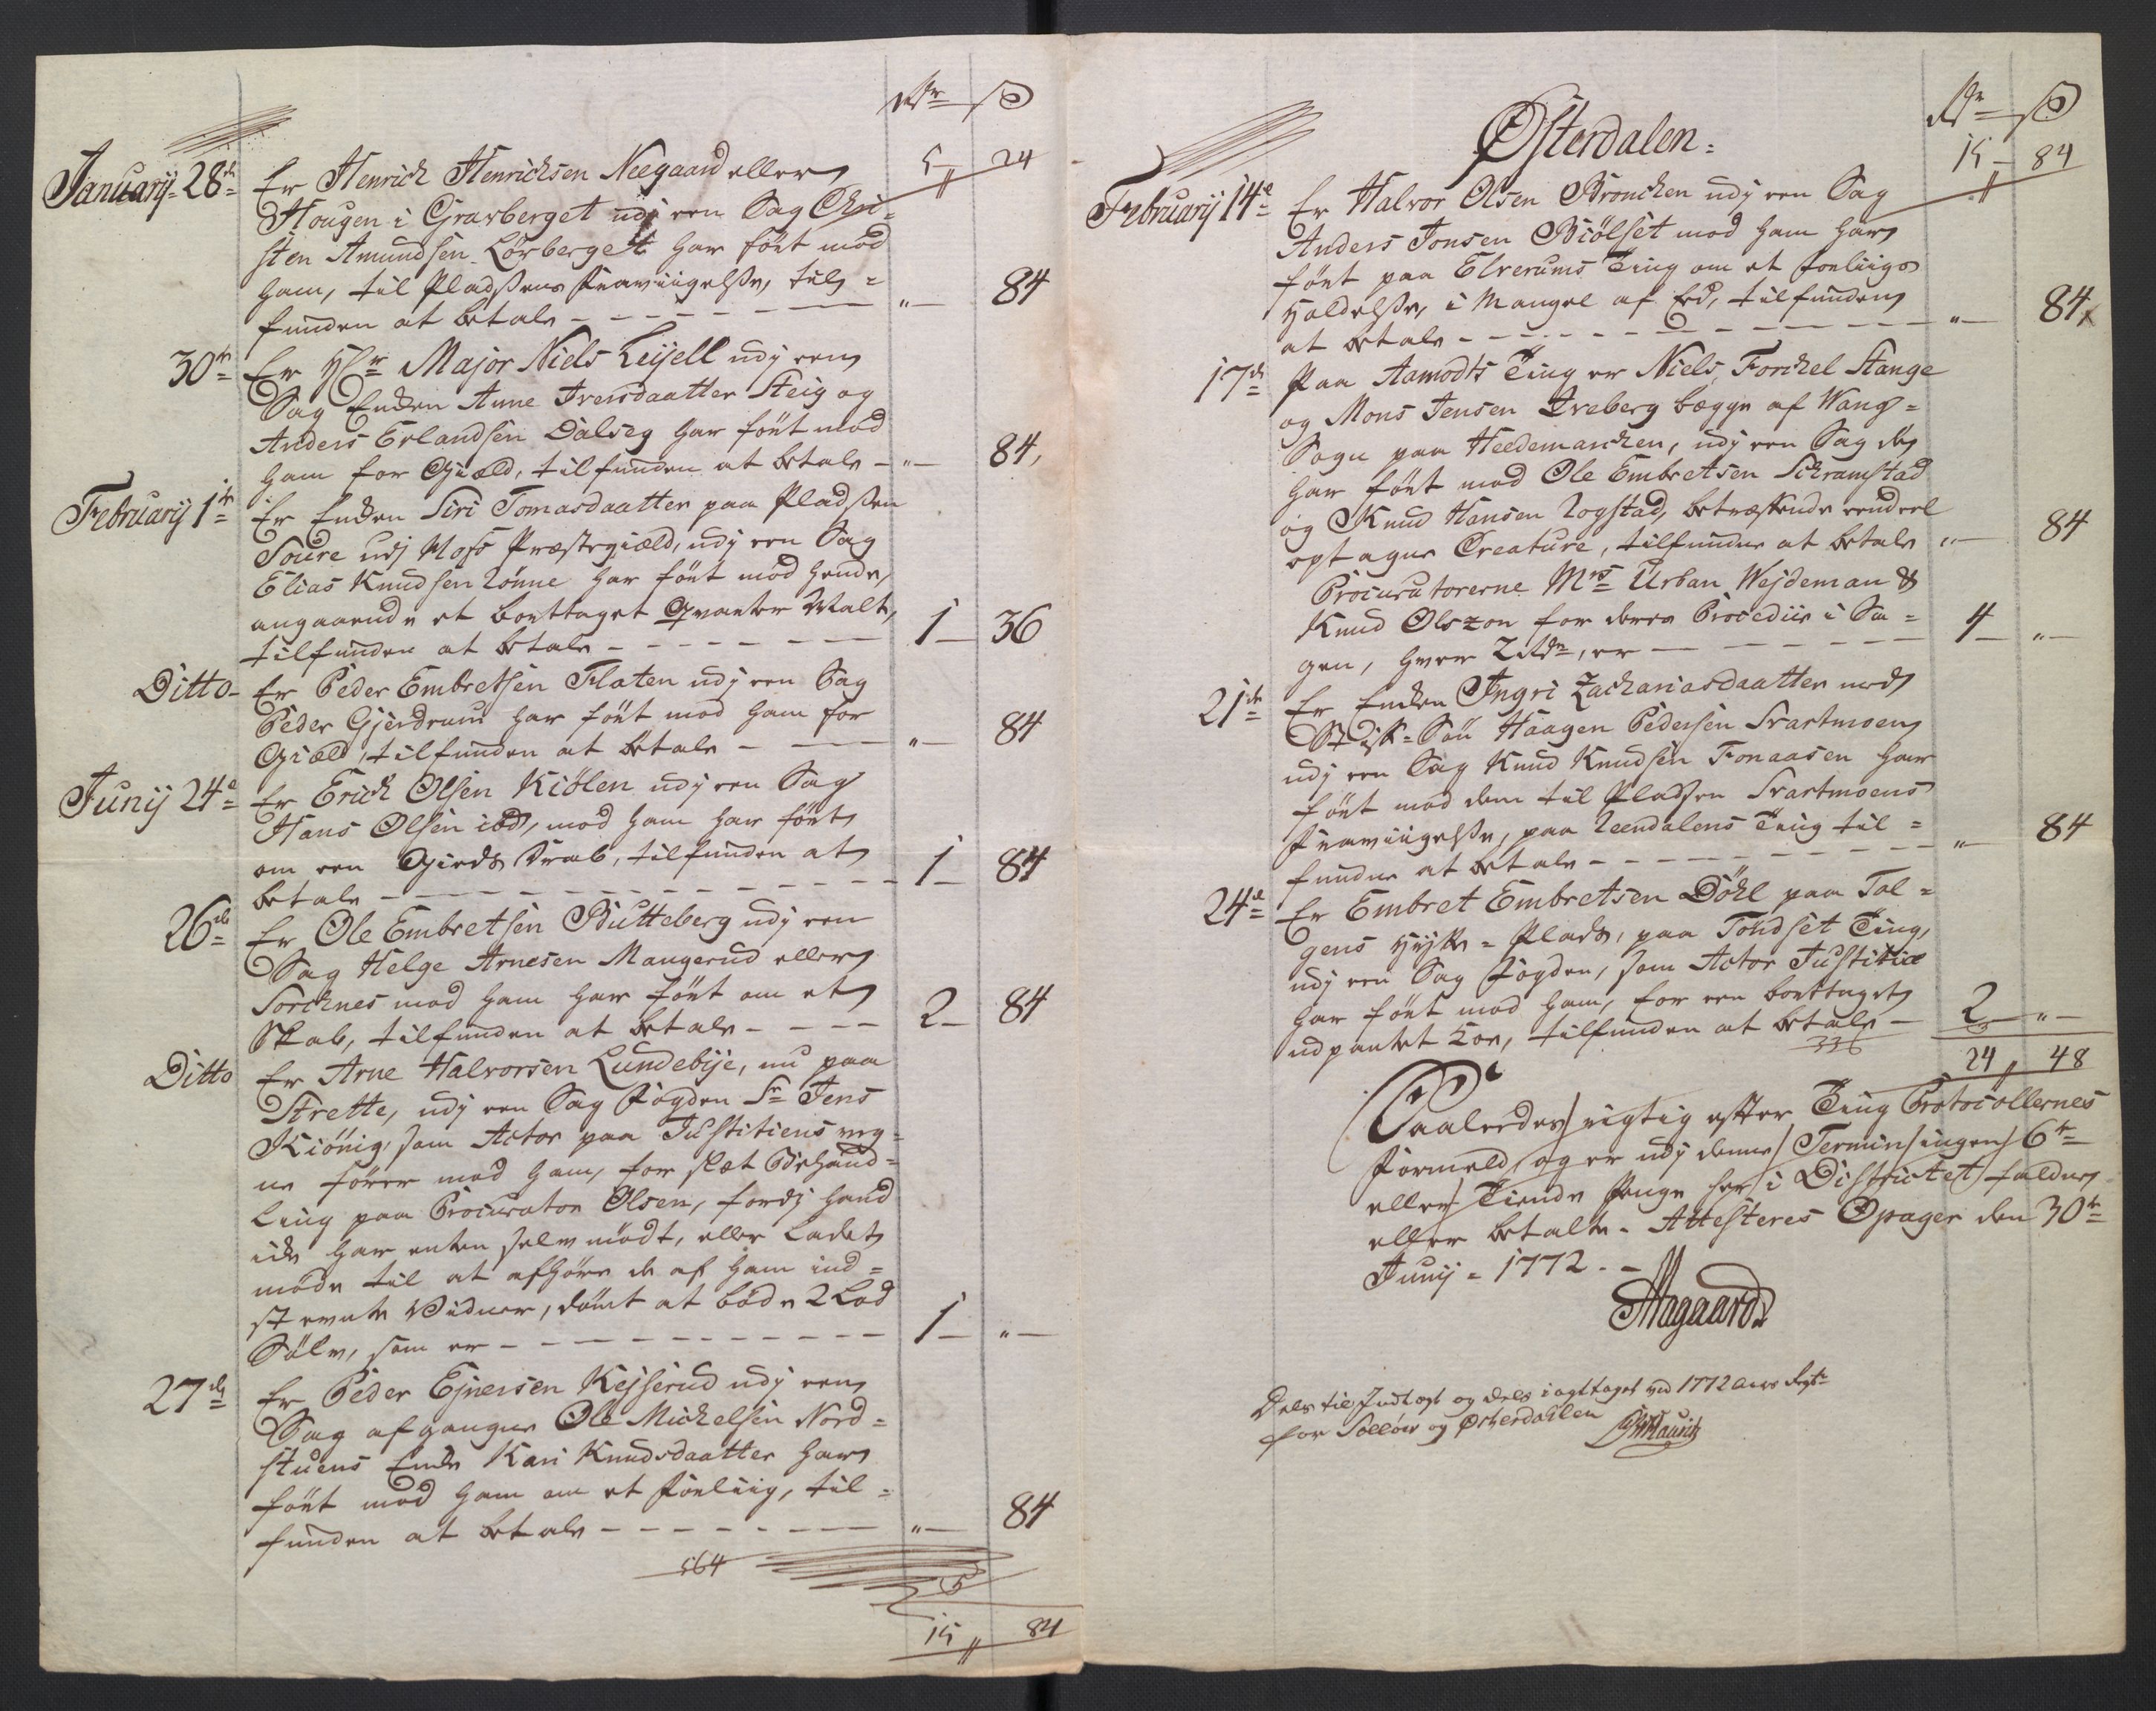 Rdr ß
5 24
January 28de Er Henrich Henrichsen Neegaard eller
Hougen i Gravberget udj een Sag Chri-
sten Amundsen Lövberget har fört mod
ham, til Pladsens Fraviigelse, til-
funden at betale - - - - - " 84
30te Er Hr Major Niels Leijell udj een
Sag Enken Anne Iversdaatter Steig og
Anders Erlandsen Dalseg har fört mod
ham for Giæld, tilfunden at betale - " 84
February 1te Er Enken Siri Tomasdaatter paa Pladsen
Soure udj Moss Præstegiæld, udj een Sag
Elias Knudsen Lönne har fört mod hende,
angaaende et borttaget Qvanter Malt,
tilfunden at betale - - - - - 1 36
Ditto Er Peder Embretsen Flaten udj een Sag
Peder Gjerdrum har fört mod ham for
Giæld, tilfunden at betale - " 84
Junij 24de Er Erich Olsen Kiölen udj een Sag
Hans Olsen ibd, mod ham har fört
om een Gierds Skab, tilfunden at
betale - - - - - 1 84
26de Er Ole Embretsen Butteberg udj een
Sag Helge Arnesen Mangerud eller
Sorknes mod ham har fört om et
Skab, tilfunden at betale - - - - 2 84
Ditto Er Arne Halvorsen Lundebye, nu paa
Strette, udj een Sag Fogden Sr Jens
Kiönig, som Actor paa Justitiens veg-
ne förer mod ham, for slet Behand-
ling paa Procurator Olsen, fordj hand
ike har enten selv mödt, eller Ladet
möde til at afhöre de af ham ind-
stevnte Vidner, dömt at böde 2 Lod
Sölv, som er - - - - - 1 "
27de Er Peder Ejnersen Kejserud udj een
Sag afgangne Ole Michelsen Nord-
stuens Enke Kari Knudsdaatter har
fört mod ham om et Forliig, til-
funden at betale - - - - - " 84
564
15 84
Østerdalen:
Rdr ß
15 84
February 14de Er Halvor Olsen Bronken udj een Sag
Anders Jonsen Biölset mod ham har
fört paa Elverums Ting om et Forliigs
Holdelse, i Mangel af Eed, tilfunden
at betale - - - - - " 84
17de Paa Aamodts Ting er Niels Forckel Stange
og Mons Jensen Freberg begge af Wang-
Sogn paa Heedemarcken, udj een Sag de
har fört mod Ole Embretsen Schramstad
og Knud Hansen Logstad, betræffende eendeel
optagne Creature, tilfundne at betale " 84
Procuratorerne Mrs Urban Wejdeman &
Knud Olszon for deres Procedur i Sa-
gen, hver 2 Rdr, er - - - 4 "
21de Er Enken Ingri Zachariasdaatter med
Stif-Sön Haagen Pedersen Svartmoen
udj een Sag Knud Knudsen Fonaasen har
fört mod dem til Pladsen Svartmoens
Fraviigelse, paa Reendalens Ting til-
fundne at betale - - - - - " 84
24de Er Embret Embretsen Döhl paa Tol-
gens Hytte-Plads, paa Töndset Ting,
udj een Sag Fogden, som Actor Justitiæ
har fört mod ham, for een borttaget
udpantet Koe, tilfunden at betale - 2 "
336
24 48
Saaledes rigtig efter Ting Protocollernes
Formeld, og er udj denne Termin ingen 6te
eller Tiende Penge her i Districtet falden
eller betalte. Attesteres Opager den 30te
Junij - 1772. -
Aagaard
Dels til Indtegt og dels iagttaget ved 1772 Aars Regsk
for Solöer og Østerdahlen